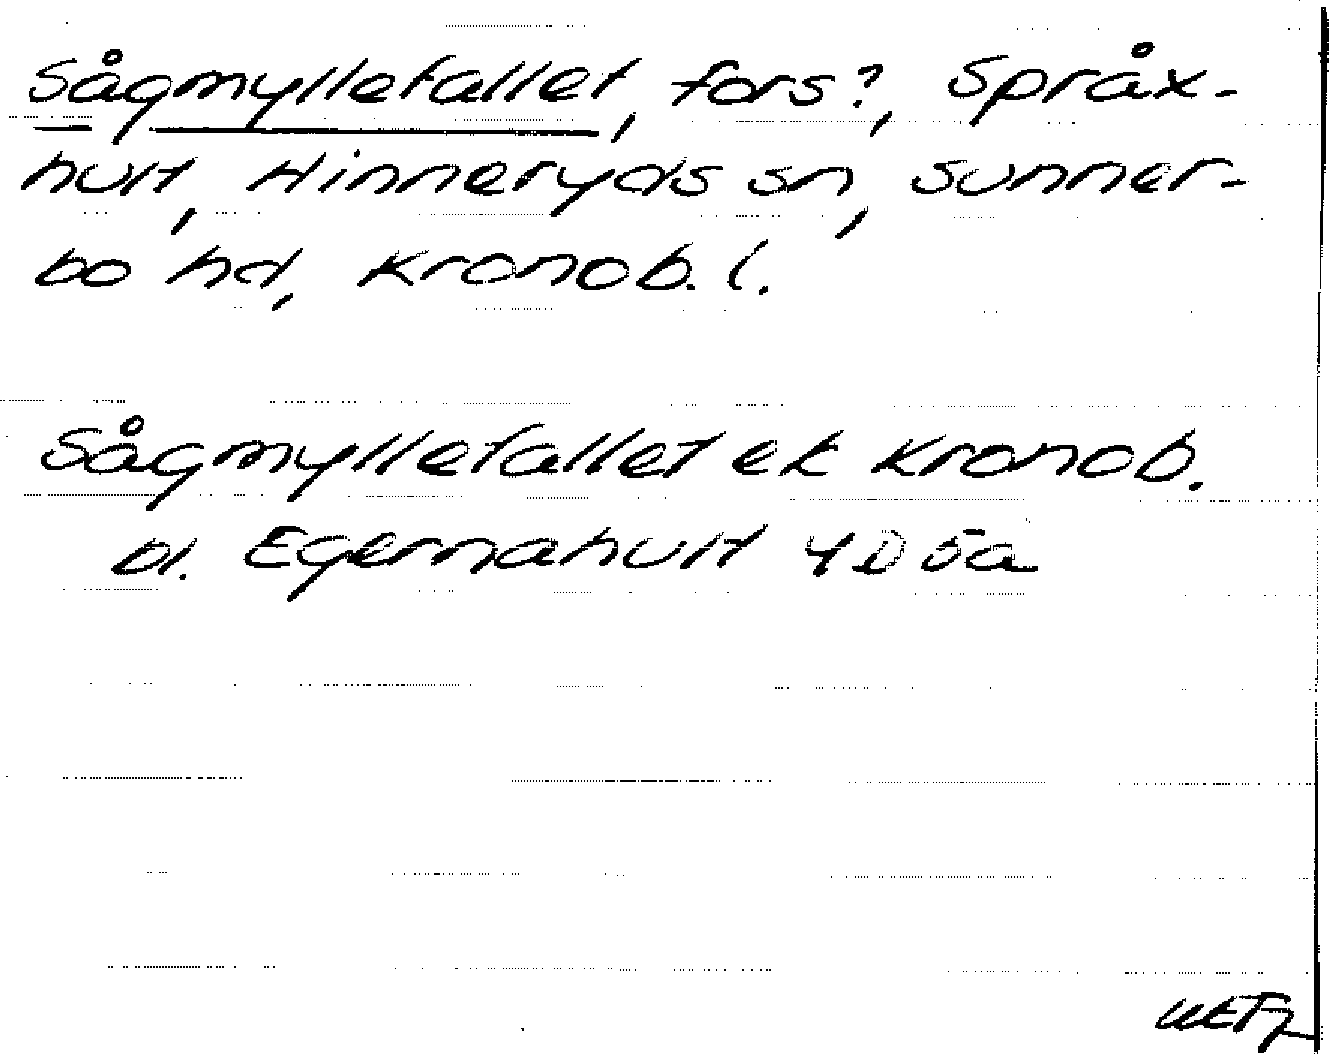 Sågmyllefallet, fors?, Språx-
hult, Hinneryds sn, Sunner-
bo hd, Kronob. l.
Sågmyllefallet ek Kronob.
bl. Egernahult 4D5a